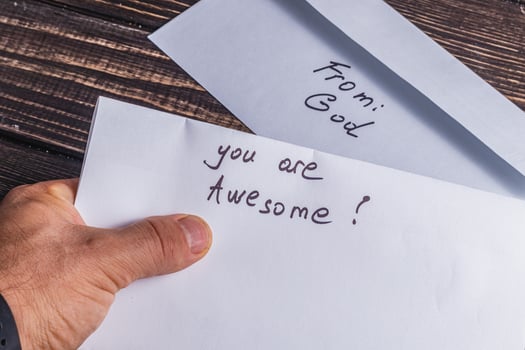 From:
God
you are
Awesome!